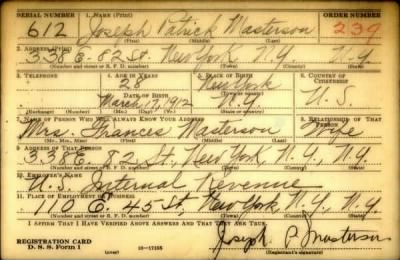 SERIAL NUMBER 1. NAME (Print) ORDER NUMBER
612 Joseph Patrick Masterson 239
(First) (Middle) (Last)
2. ADDRESS (Print)
338 E. 82 St. New York N.Y. N.Y.
(Number and street or R. F. D. number) (Town) (County) (State)
3. TELEPHONE 4. AGE IN YEARS 5. PLACE OF BIRTH 6. COUNTRY OF CITIZENSHIP
28 New York
DATE OF BIRTH (Town or county)
March, 17, 1912 N.Y. U.S.
(Exchange) (Number) (Mo.) (Day) (Yr.) (State or country)
7. NAME OF PERSON WHO WILL ALWAYS KNOW YOUR ADDRESS 8. RELATIONSHIP OF THAT PERSON
Mrs. Frances Masterson Wife
(Mr., Mrs., Miss) (First) (Middle) (Last)
9. ADDRESS OF THAT PERSON
338 E. 82 St., New York, N.Y., N.Y.
(Number and street or R. F. D. number) (Town) (County) (State)
10. EMPLOYER'S NAME
U.S. Internal Revenue
11. PLACE OF EMPLOYMENT OR BUSINESS
110 E. 45 St, New York, N.Y., N.Y.
(Number and street or R. F. D. number) (Town) (County) (State)
I AFFIRM THAT I HAVE VERIFIED ABOVE ANSWERS AND THAT THEY ARE TRUE.
REGISTRATION CARD
D. S. S. Form 1 (over) 16—17105 Joseph P. Masterson
(Registrant's signature)